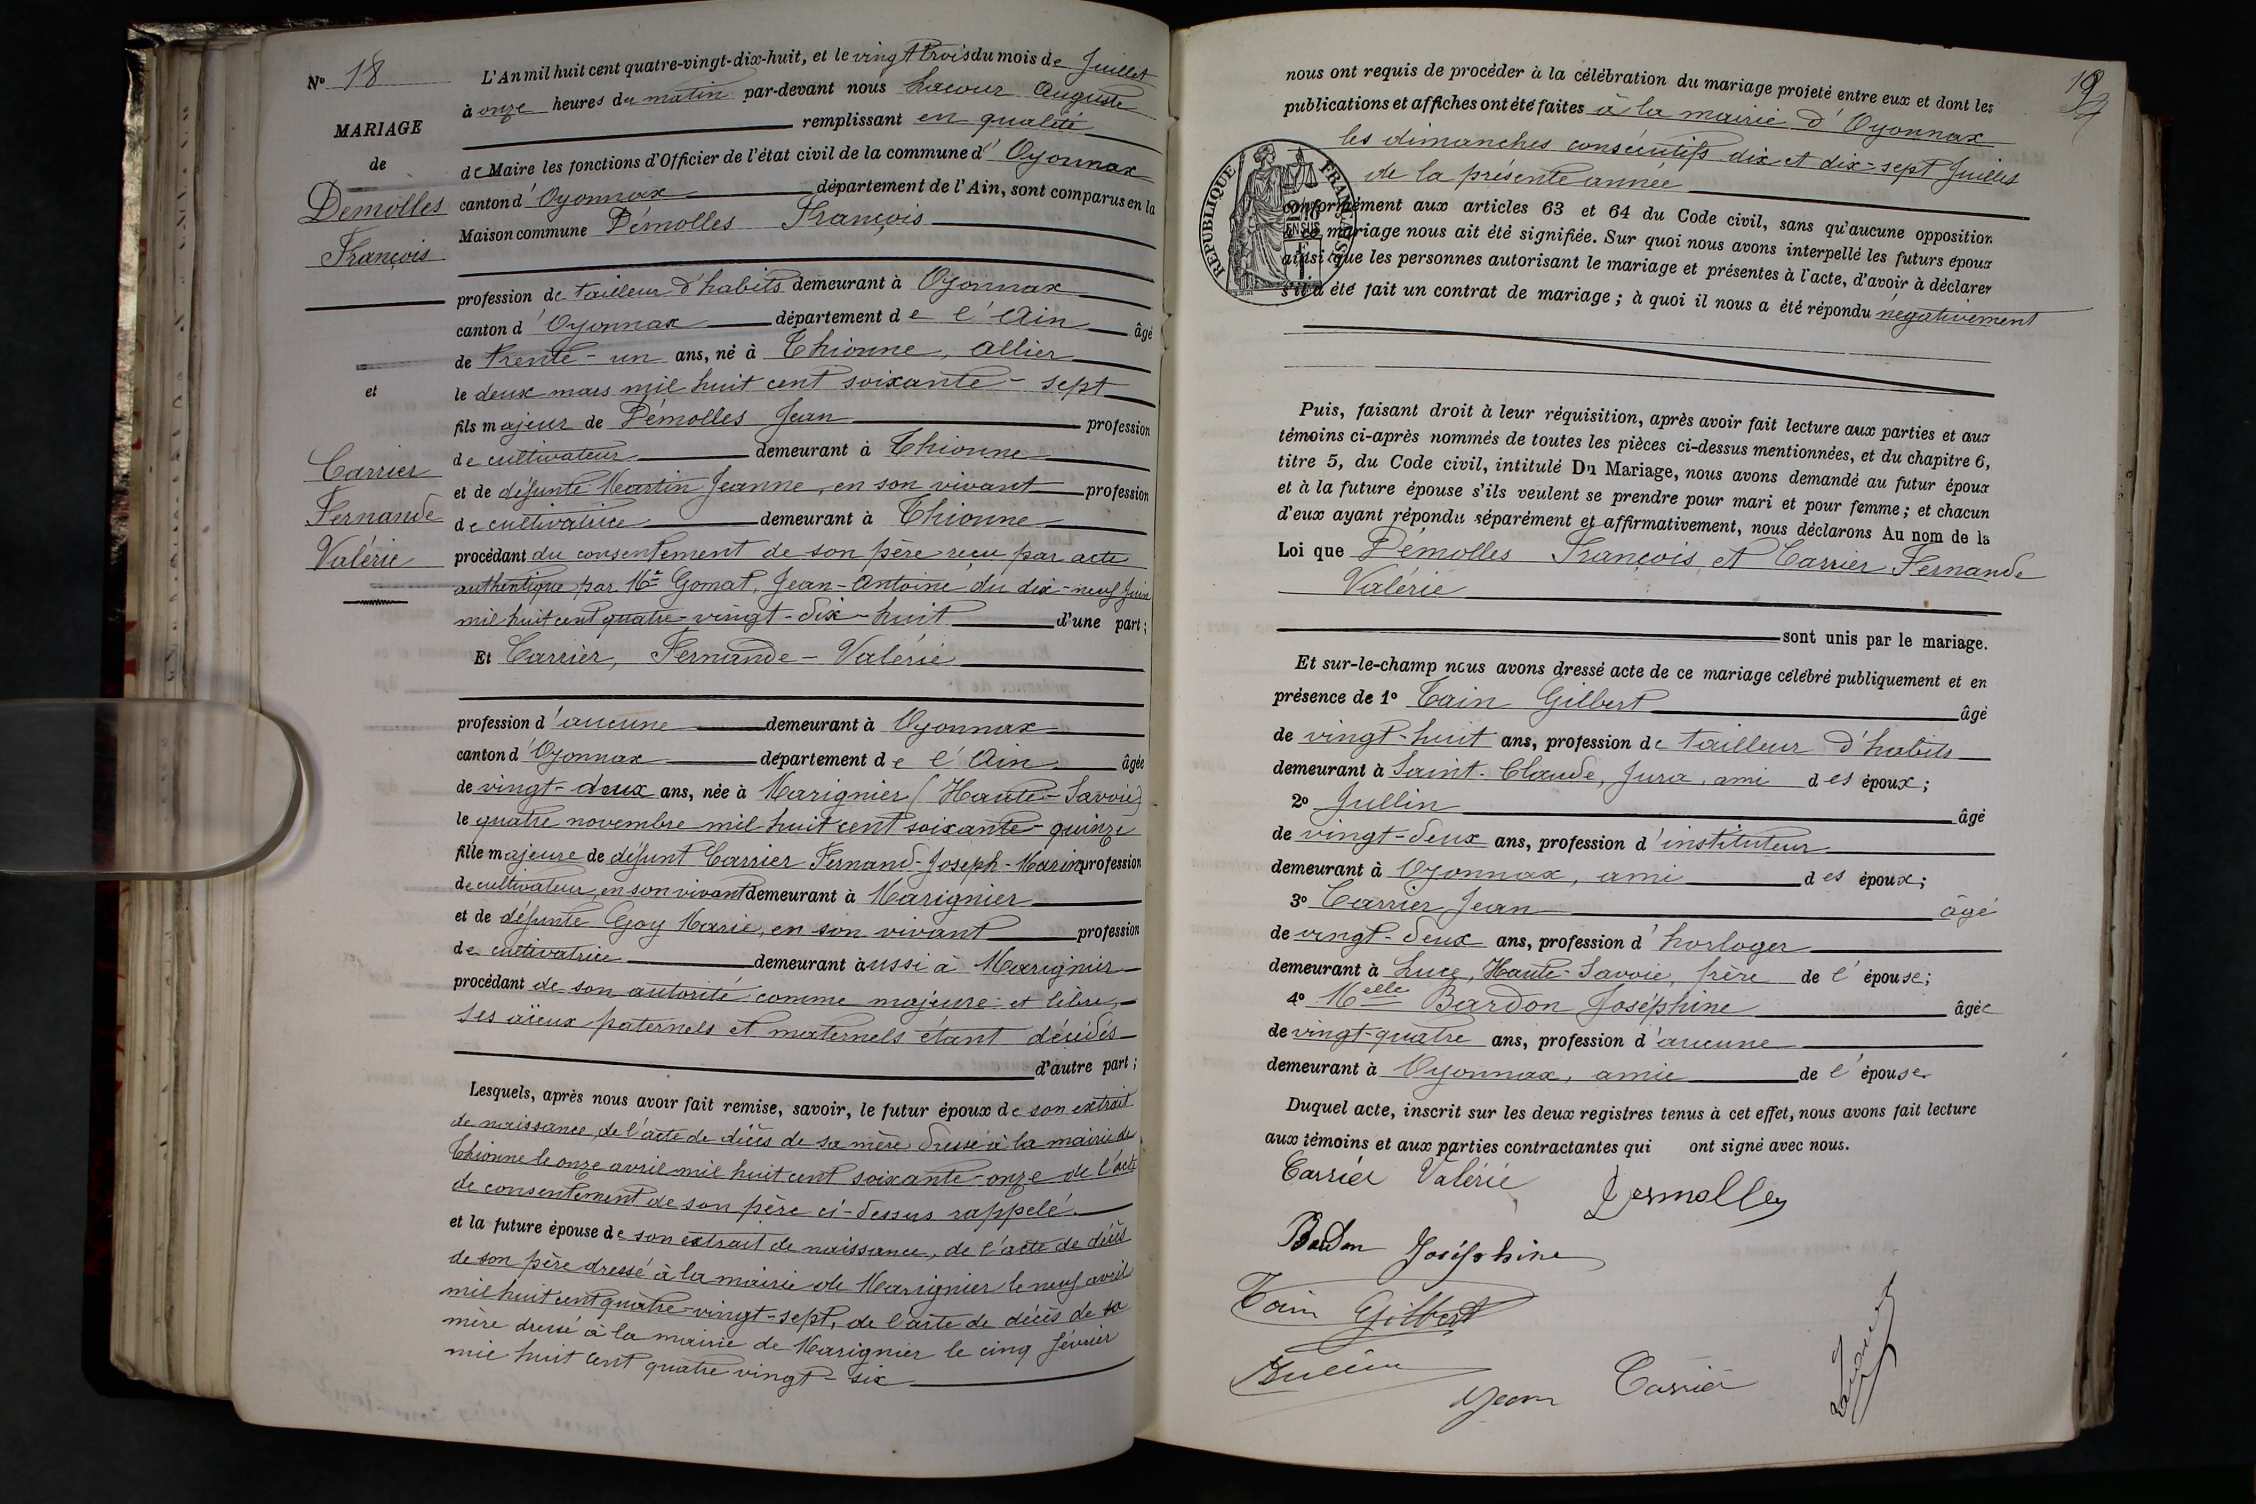 N° 18
MARIAGE
de
Demolles
François
et
Carrier
Fernande
Valérie
L'An mil huit cent quatre-vingt-dix-huit, et le vingt trois du mois de Juillet
à onze heures du matin par-devant nous Lacour Auguste
remplissant en qualité
de Maire les fonctions d'Officier de l'état civil de la commune d'Oyonnax
canton d'Oyonnax département de l'Ain, sont comparus en la
Maison commune Démolles François
profession de tailleur d'habits demeurant à Oyonnax
canton d'Oyonnax département de l'Ain âgé
de trente-un ans, né à Thionne, Allier
le deux mars mil huit cent soixante-sept
fils majeur de Démolles Jean profession
de cultivateur demeurant à Thionne
et de défunte Martin Jeanne, en son vivant profession
de cultivatrice demeurant à Thionne
procédant du consentement de son père reçu par acte
authentique par Me Gomat, Jean-Antoine du dix-neuf Juin
mil huit cent quatre-vingt-dix-huit d'une part;
Et Carrier, Fernande-Valérie
profession d'aucune demeurant à Oyonnax
canton d'Oyonnax département de l'Ain âgée
de vingt-deux ans, née à Marignier (Haute-Savoie)
le quatre novembre mil huit cent soixante-quinze
fille majeure de défunt Carrier Fernand-Joseph-Marin profession
de cultivateur, en son vivant demeurant à Marignier
et de défunte Goy Marie, en son vivant profession
de cultivatrice demeurant aussi à Marignier
procédant de son autorité comme majeure et libre,
ses aïeux paternels et maternels étant décédés
d'autre part;
Lesquels, après nous avoir fait remise, savoir, le futur époux de son extrait
de naissance, de l'acte de décès de sa mère dressé à la mairie de
Thionne le onze avril mil huit cent soixante-onze de l'acte
de consentement de son père ci-dessus rappelé.
et la future épouse de son extrait de naissance, de l'acte de décès
de son père dressé à la mairie de Marignier le neuf avril
mil huit cent quatre-vingt-sept, de l'acte de décès de sa
mère dressé à la mairie de Marignier le cinq février
mil huit cent quatre vingt-six
nous ont requis de procéder à la célébration du mariage projeté entre eux et dont les
publications et affiches ont été faites à la mairie d'Oyonnax
les dimanches consécutifs dix et dix-sept Juillet
de la présente année
conformément aux articles 63 et 64 du Code civil, sans qu'aucune opposition
à ce mariage nous ait été signifiée. Sur quoi nous avons interpellé les futurs époux
ainsi que les personnes autorisant le mariage et présentes à l'acte, d'avoir à déclarer
s'il a été fait un contrat de mariage; à quoi il nous a été répondu négativement
RÉPUBLIQUE FRANÇAISE
2/10 EN SUS
Puis, faisant droit à leur réquisition, après avoir fait lecture aux parties et aux
témoins ci-après nommés de toutes les pièces ci-dessus mentionnées, et du chapitre 6,
titre 5, du Code civil, intitulé Du Mariage, nous avons demandé au futur époux
et à la future épouse s'ils veulent se prendre pour mari et pour femme; et chacun
d'eux ayant répondu séparément et affirmativement, nous déclarons Au nom de la
Loi que Démolles François et Carrier Fernande
Valérie
sont unis par le mariage.
Et sur-le-champ nous avons dressé acte de ce mariage célébré publiquement et en
présence de 1° Tain Gilbert âgé
de vingt-huit ans, profession de tailleur d'habits
demeurant à Saint-Claude, Jura, ami des époux;
2° Jullin âgé
de vingt-deux ans, profession d'instituteur
demeurant à Oyonnax, ami des époux;
3° Carrier Jean âgé
de vingt-deux ans, profession d'horloger
demeurant à Luce, Haute-Savoie, frère de l'épouse;
4° Melle Bardon Joséphine âgée
de vingt-quatre ans, profession d'aucune
demeurant à Oyonnax, amie de l'épouse
Duquel acte, inscrit sur les deux registres tenus à cet effet, nous avons fait lecture
aux témoins et aux parties contractantes qui ont signé avec nous.
Carrier Valérie
Desmolles
Bardon Joséphine
Tain Gilbert
Jullin
Jean Carrier